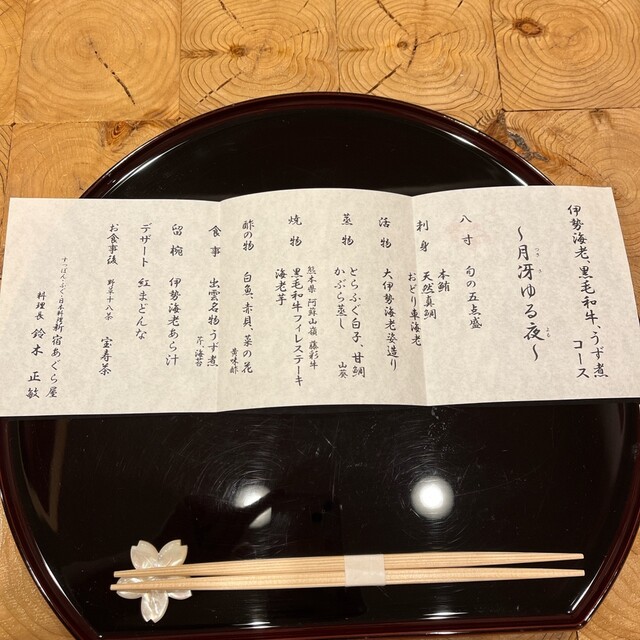 伊勢海老、黒毛和牛、うず煮
コース
～月冴ゆる夜～
つき さ よる
八寸 旬の五点盛
刺身 本鮪
天然真鯛
おどり車海老
活物 大伊勢海老姿造り
蒸物 とらふぐ白子、甘鯛
かぶら蒸し 山葵
焼物 熊本県 阿蘇山嶺 藤彩牛
黒毛和牛フィレステーキ
海老芋
酢の物 白魚、赤貝、菜の花
黄味酢
食事 出雲名物うず煮
芹、海苔
留椀 伊勢海老あら汁
デザート 紅まどんな
お食事後 野菜十八茶 宝寿茶
すっぽん・ふぐ・日本料理 新宿あぐら屋
料理長 鈴木 正敏